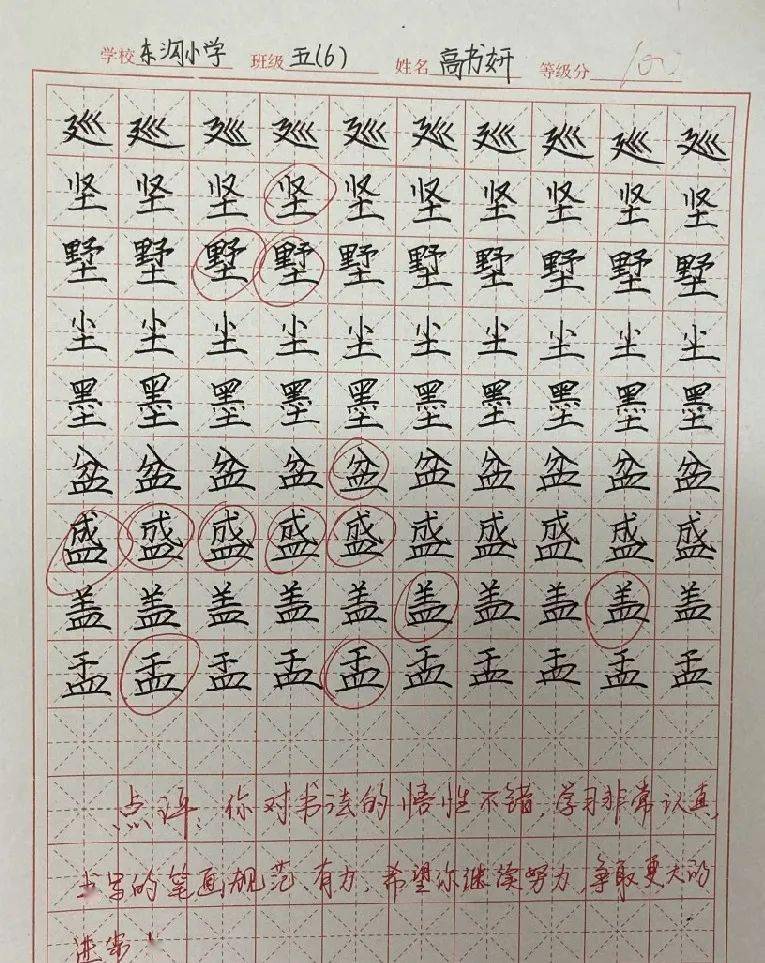 学校 东沟小学 班级 五(6) 姓名 高书妍 等级分 100
巡 巡 巡 巡 巡 巡 巡 巡 巡 巡
坚 坚 坚 坚 坚 坚 坚 坚 坚 坚
墅 墅 墅 墅 墅 墅 墅 墅 墅 墅
尘 尘 尘 尘 尘 尘 尘 尘 尘 尘
墨 墨 墨 墨 墨 墨 墨 墨 墨 墨
盆 盆 盆 盆 盆 盆 盆 盆 盆 盆
盛 盛 盛 盛 盛 盛 盛 盛 盛 盛
盖 盖 盖 盖 盖 盖 盖 盖 盖 盖
盂 盂 盂 盂 盂 盂 盂 盂 盂 盂
点评:你对书法的悟性不错,学习非常认真,
书写的笔画规范、有力,希望你继续努力,争取更大的
进步!